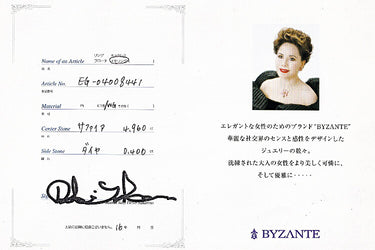 Name of an Article
リング
ブローチ
Article No. EG-04008441
Material
Center Stone サファイア 4.960 ct
Side Stone ダイヤ 0.400 ct
上記の記載に相違ございません。 16 年 月 日
エレガントな女性のためのブランド"BYZANTE"
華麗な社交界のセンスと感性をデザインした
ジュエリーの数々。
洗練された大人の女性をより美しく可憐に、
そして優雅に・・・・・
BYZANTE